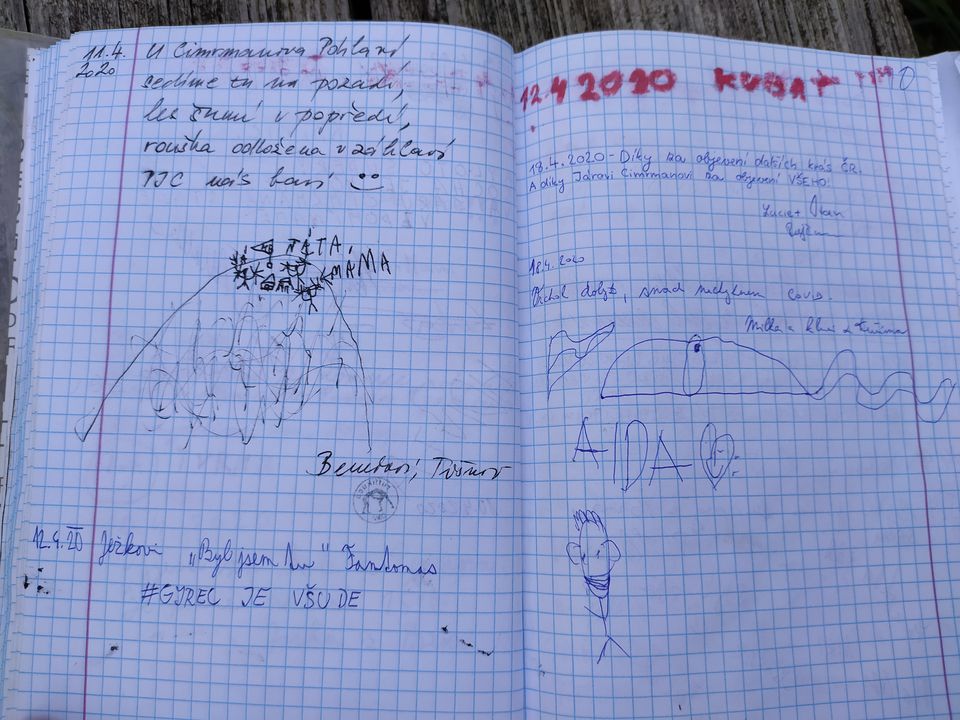 11.4. U Cimrmanova Pohlaví
2020 sedíme tu na pozadí,
les šumí v popředí,
rouška odložena v záhlaví
nás baví
TÁTA,
MÁMA
Benedovi, Tišnov
12.4.20 Ježkovi „Byl jsem tu" Fantomas
#GYREC JE VŠUDE
12.4 2020
18.4.2020 - Díky za objevení dalších krás ČR.
A díky Járovi Cimrmanovi za objevení VŠEHO!
Lucie +
18.4.2020
Vrchol dobyt, snad nechytnem covid.
AIDA